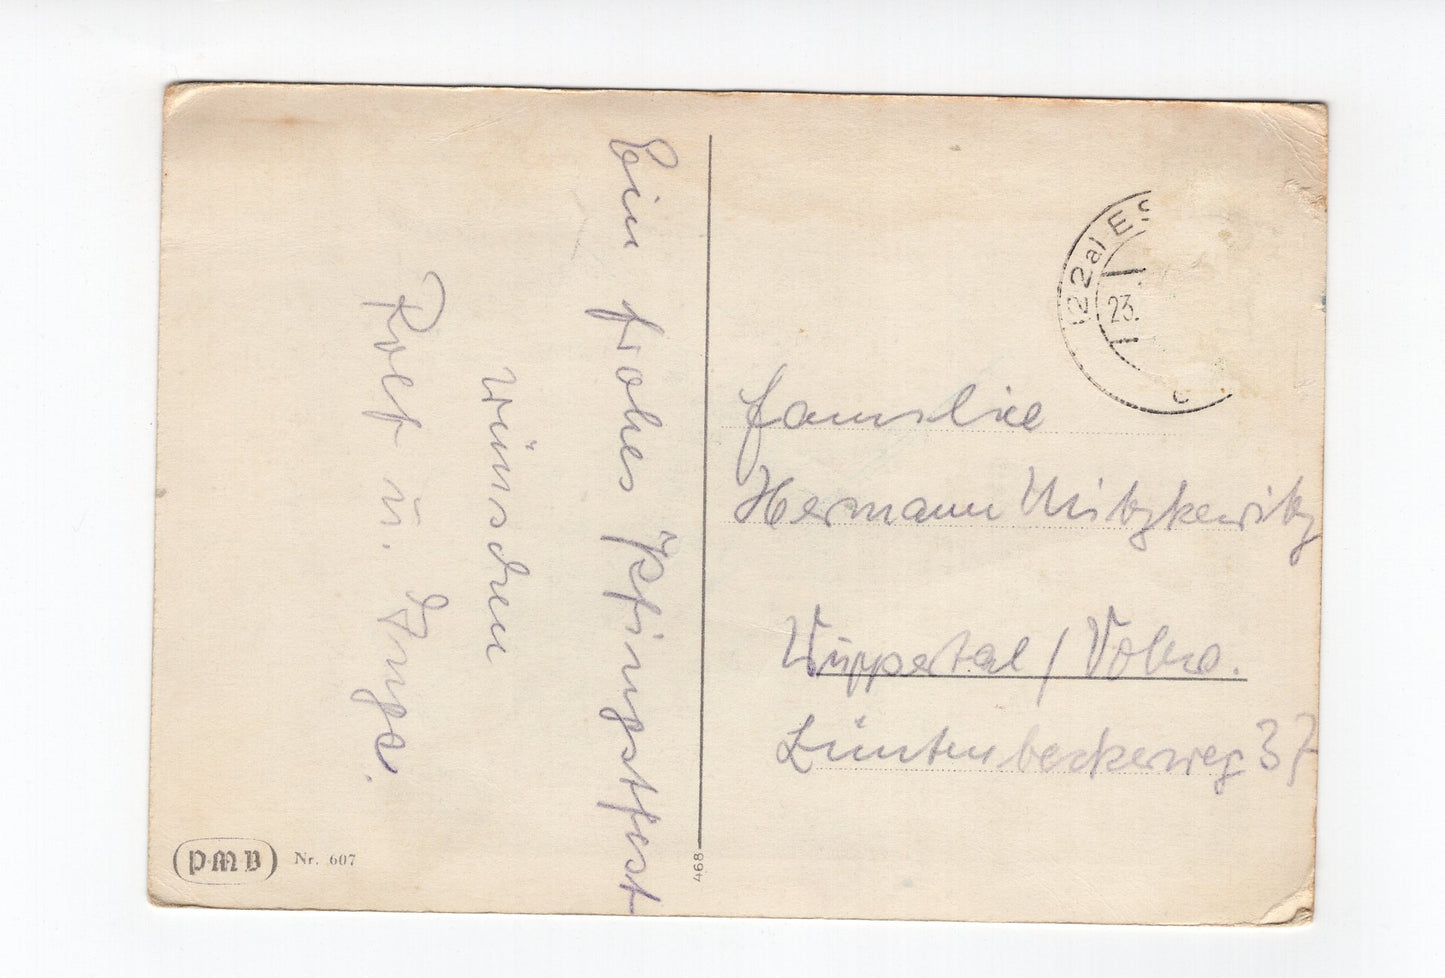 Ein frohes Pfingstfest
wünschen
Rolf u. Inge.
(22a) ES
23.
Familie
Hermann Mitzkewitz
Wuppertal / Vohw.
Lüntenbeckerweg 37
PMB Nr. 607
468